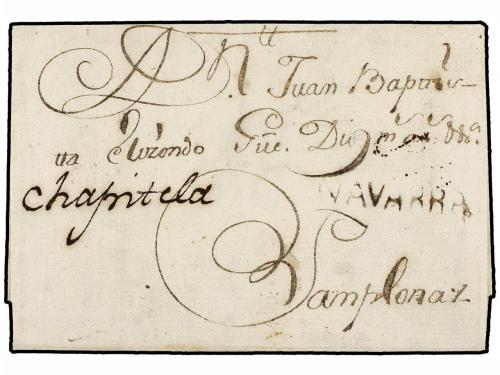 A Dn Juan Baptis
ta Elizondo Gue. Ds ms as
Chapitela
NAVARRA
Pamplona